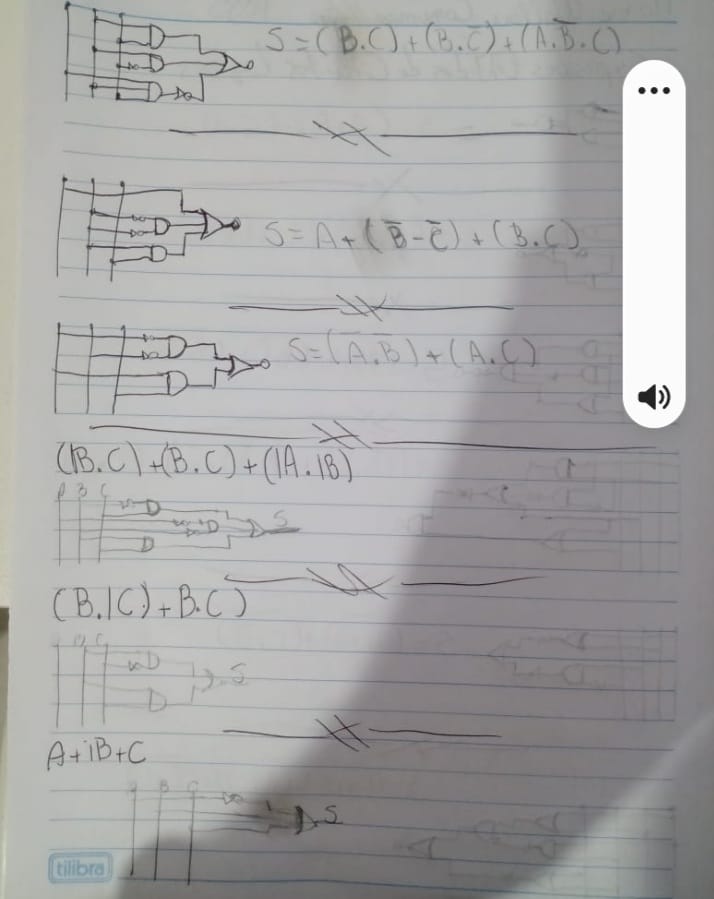 S = (B.C) + (B.C̅) + (A.B̅.C)
S = A + (B̅-C̅) + (B.C)
S = (A̅.B̅) + (A.C)
(IB.C)+(B.C)+(IA.IB)
A B C
S
(B.IC)+B.C)
B C
S
A+IB+C
B C
S
tilibra